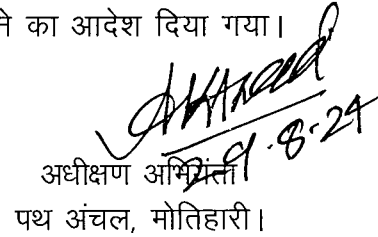 ने का आदेश दिया गया।
29.8.24
अधीक्षण अभियंता
पथ अंचल, मोतिहारी।